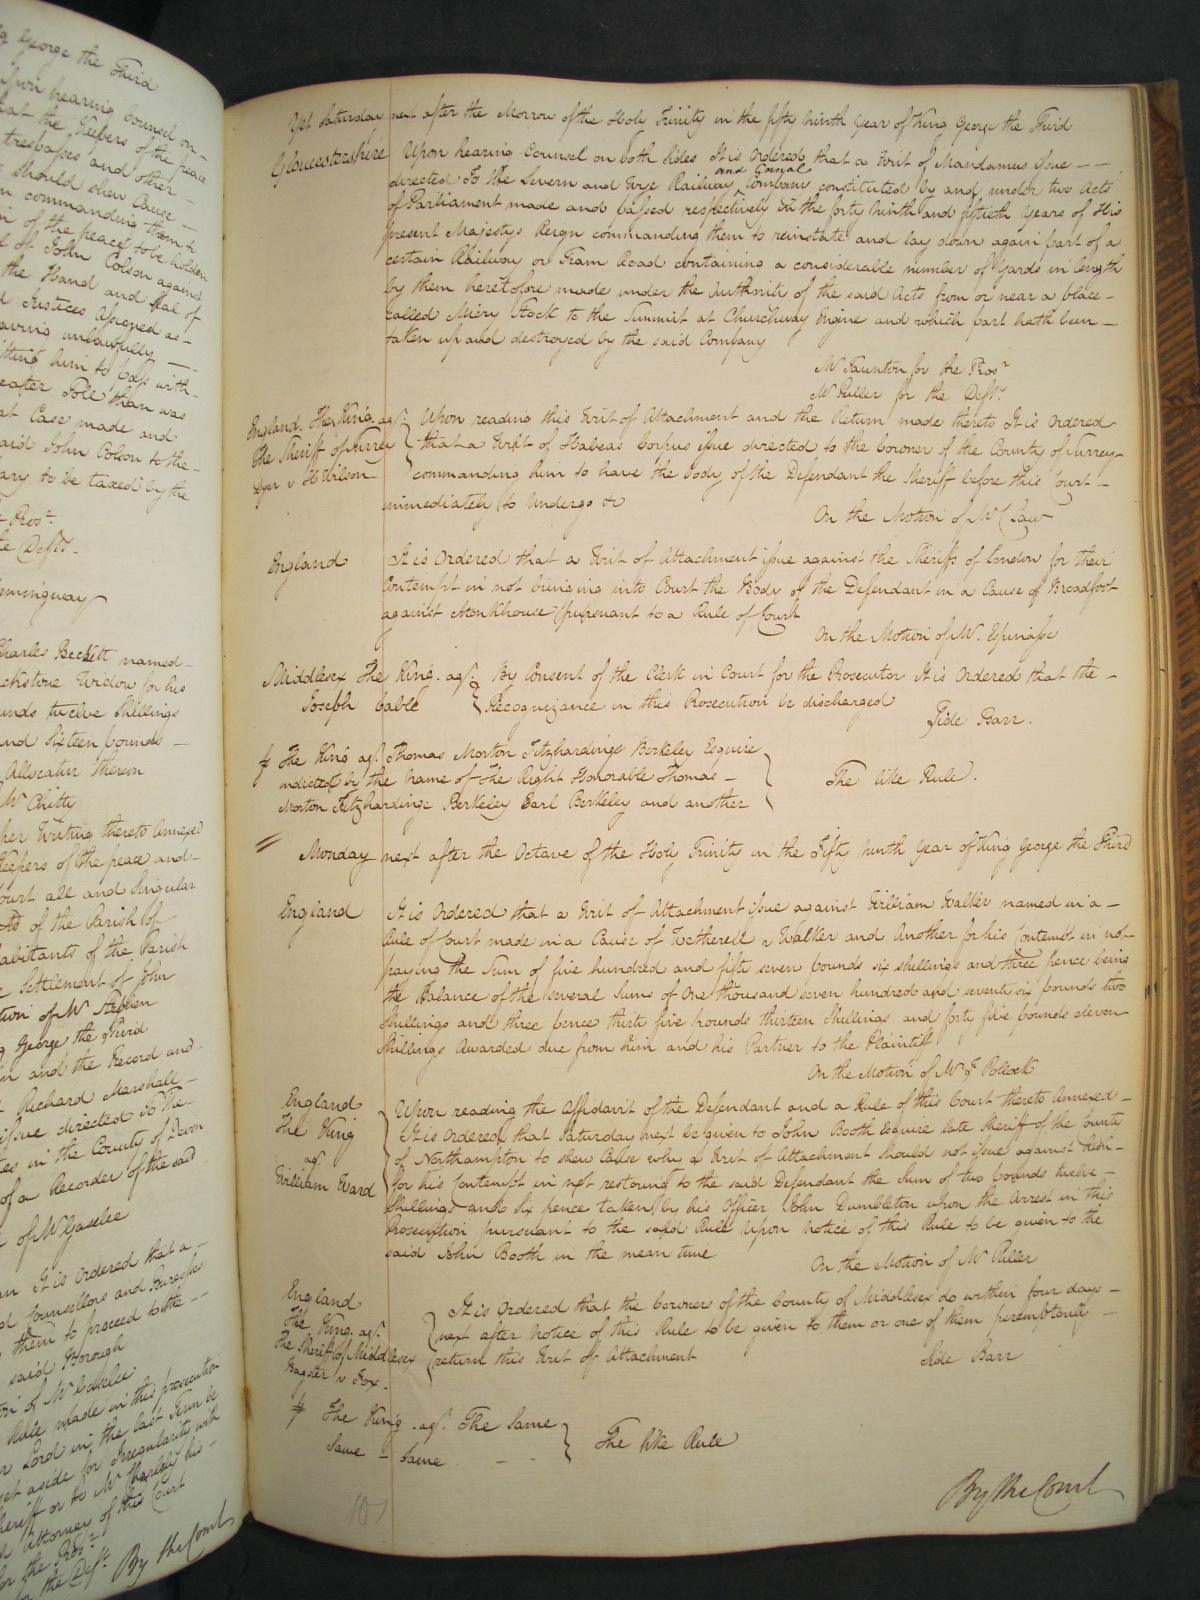 g George the Third
Upon hearing Counsel on
that the Keepers of the peace
trespasses and other
should shew Cause
commanding them to
of the peace to be holden
of John Colson against
the Hand and Seal of
Justices Assigned as
having unlawfully
him to pass with
Toll than was
Case made and
said John Colson to the
to be taxed by the
Pros.r
Deft.
Charles Beckett named
Widow for his
twelve Shillings
and Sixteen pounds
Allocatur thereon
Mr Chitty
Writing thereto Annexed
Keepers of the peace and
Court all and Singular
of the Parish of
Inhabitants of the Parish
Settlement of John
of Mr Stephen
George the Third
and the Record and
Richard Marshall
issue directed To the
in the County of Devon
of a Recorder of the said
of Mr Gaselee
It is ordered that a
Counsellors and Burgesses
them to proceed to the
said Borough
Rule made in this prosecution
Lord in the last Term be
set aside for Irregularity with
Sheriff or to Mr his
Attorney of this Court
for the Pros.r
the Deft. By the Court
Yet Saturday next after the Morrow of the Holy Trinity in the fifty ninth Year of King George the Third
Gloucestershire Upon hearing Counsel on both sides It is Ordered that a Writ of Mandamus issue
directed To the Severn and Wye Railway and Canal Company constituted by and under two Acts
of Parliament made and passed respectively in the forty ninth and fiftieth Years of His
present Majestys Reign commanding them to reinstate and lay down again part of a
certain Railway or Tram Road containing a considerable number of Yards in length
by them heretofore made under the Authority of the said Acts from or near a place
called Miery Stock to the Summit at Churchway Engine and which part hath been
taken up and destroyed by the said Company
Mr Taunton for the Pros.r
Mr Puller for the Deft.
England. The King. agt. Upon reading this Writ of Attachment and the Return made thereto It is Ordered
The Sheriff of Surrey that a Writ of Habeas Corpus issue directed to the Coroner of the County of Surrey
Dyer v Wilson commanding him to have the body of the Defendant the Sheriff before this Court
immediately to undergo &c
On the Motion of Mr C Law
England It is Ordered that a Writ of Attachment issue against the Sheriffs of London for their
Contempt in not bringing into Court the Body of the Defendant in a Cause of Broadfoot
against Monkhouse pursuant to a Rule of Court
On the Motion of Mr. Espinasse
Middlesex The King. agt. By Consent of the Clerk in Court for the Prosecutor It is Ordered that the
Joseph Cable Recognizance in this Prosecution be discharged
Side Barr.
The King agt. Thomas Morton Fitzhardinge Berkeley Esquire
indicted by the name of the Right Honorable Thomas
Morton Fitzhardinge Berkeley Earl Berkeley and another
The like Rule.
Monday next after the Octave of the Holy Trinity in the Fifty ninth Year of King George the Third
England It is Ordered that a Writ of Attachment issue against William Walker named in a
Rule of Court made in a Cause of Wetherell v Walker and Another for his Contempt in not
paying the Sum of five hundred and fifty seven pounds six shillings and three pence being
the Balance of the several Sums of One thousand seven hundred and seventy six pounds two
Shillings and three pence thirty five pounds thirteen Shillings and forty five pounds eleven
Shillings Awarded due from him and his Partner to the Plaintiff
On the Motion of Mr F Pollock
England Upon reading the Affidavit of the Defendant and a Rule of this Court thereto Annexed
The King It is Ordered that Saturday next be given to John Booth Esquire late Sheriff of the County
agt of Northampton to shew Cause why a Writ of Attachment should not issue against him
William Ward for his Contempt in not restoring to the said Defendant the Sum of two pounds twelve
Shillings and Six pence taken by his Officer John Dumbleton upon the Arrest in this
Prosecution pursuant to the said Rule Upon notice of this Rule to be given to the
said John Booth in the mean time
On the Motion of Mr Puller
England It is Ordered that the Coroner of the County of Middlesex do within four days
The King. agt. next after notice of this Rule to be given to them or one of them peremptorily
The Sheriff of Middlesex return this Writ of Attachment
Bagster v Fox. Side Barr
The King. agt. The Same
Same Same The like Rule
By the Court
107